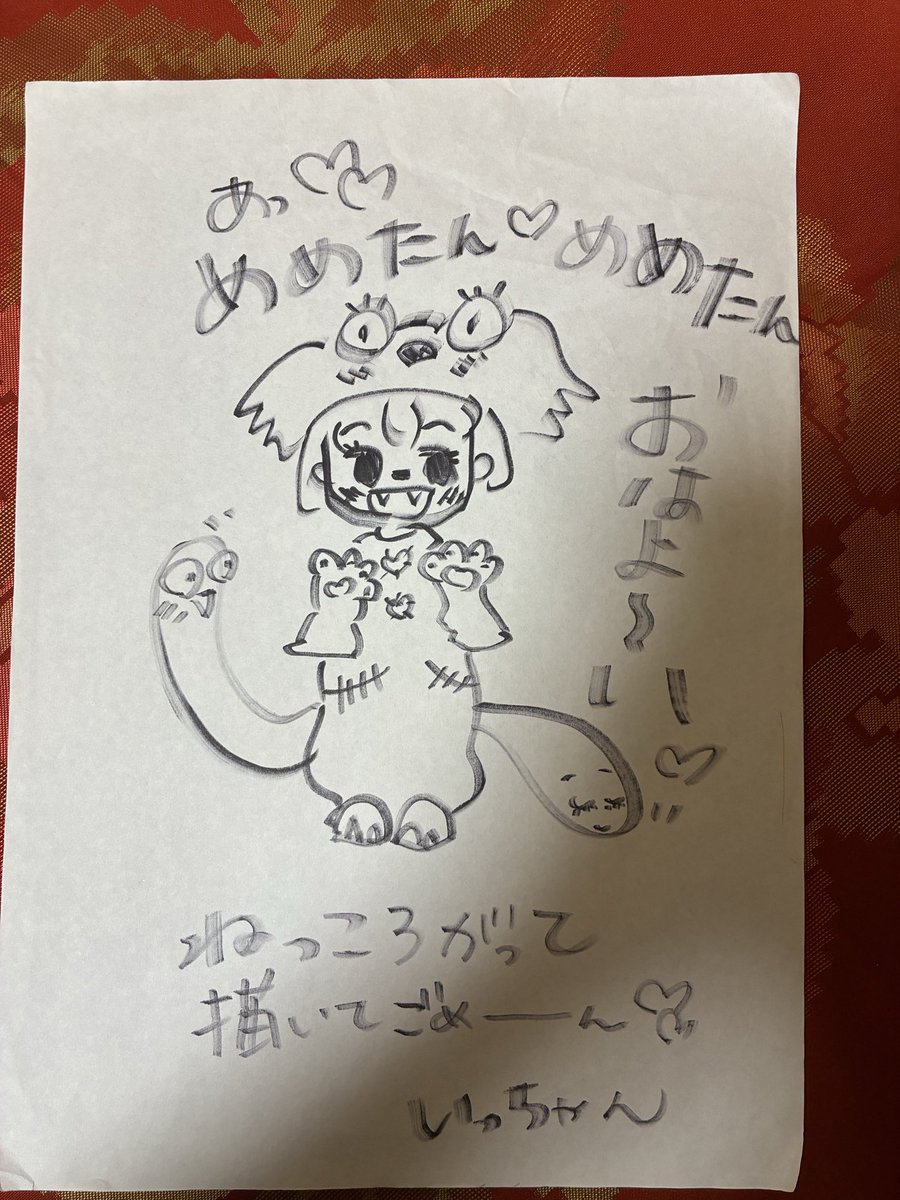 あっ♡♡
めめたん♡めめたん
おはよ〜ーー♡
ねっころがって
描いてごめーーん♡
いっちゃん